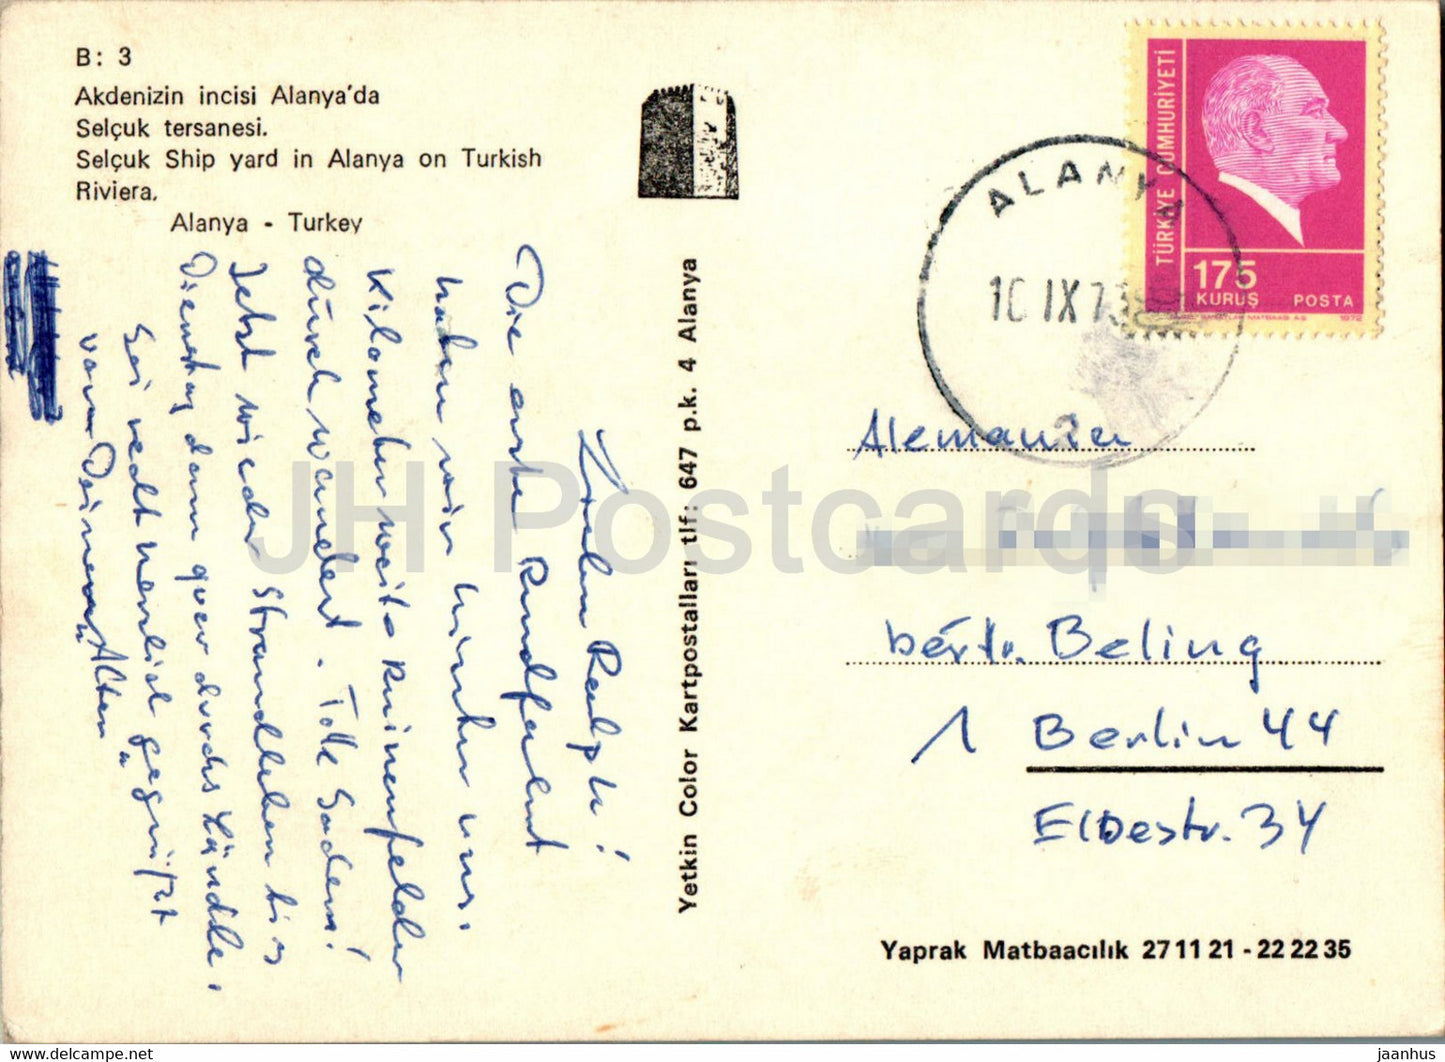 B: 3
Akdenizin incisi Alanya'da
Selçuk tersanesi.
Selçuk Ship yard in Alanya on Turkish
Riviera.
Alanya - Turkey
Yetkin Color Kartpostalları tlf: 647 p.k. 4 Alanya
TÜRKİYE CUMHURİYETİ
175
KURUŞ POSTA
1972
ALANYA
10 IX 73
2
Ralph!
Die erste Rundfahrt
haben wir hinter uns.
Kilometerweite Ruinenfelder
durchwandert. Tolle Sachen!
Jetzt wieder Strandleben bis
Dienstag dann quer durchs Ländle.
Sei recht herzlich gegrüßt
von Deinem "Alten"
Alemanien
Beling
1 Berlin 44
Elbestr. 34
Yaprak Matbaacılık 27 11 21 - 22 22 35
JH Postcards
www.delcampe.net
jaanhus